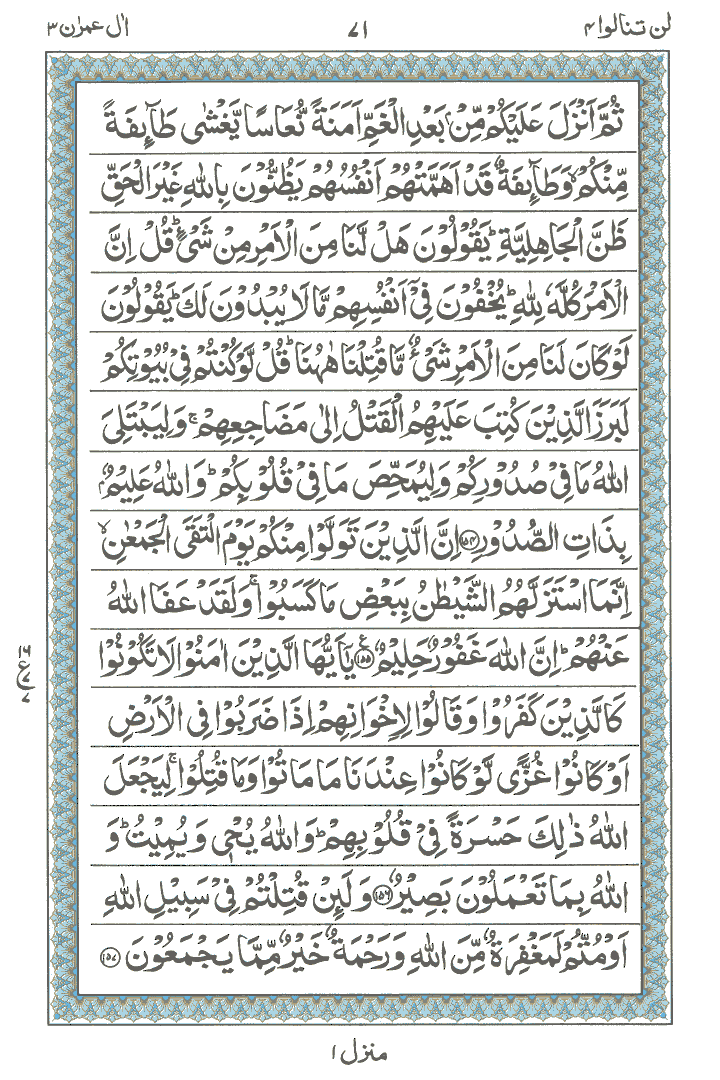 لن تنالوا ۴
۷۱
اٰل عمرٰن ۳
ثُمَّ اَنْزَلَ عَلَيْكُمْ مِّنْۢ بَعْدِ الْغَمِّ اَمَنَةً نُّعَاسًا يَّغْشٰى طَآئِفَةً
مِّنْكُمْ ۙ وَطَآئِفَةٌ قَدْ اَهَمَّتْهُمْ اَنْفُسُهُمْ يَظُنُّوْنَ بِاللّٰهِ غَيْرَ الْحَقِّ
ظَنَّ الْجَاهِلِيَّةِ ؕ يَقُوْلُوْنَ هَلْ لَّنَا مِنَ الْاَمْرِ مِنْ شَىْءٍ ؕ قُلْ اِنَّ
الْاَمْرَ كُلَّهٗ لِلّٰهِ ؕ يُخْفُوْنَ فِىْۤ اَنْفُسِهِمْ مَّا لَا يُبْدُوْنَ لَكَ ؕ يَقُوْلُوْنَ
لَوْ كَانَ لَنَا مِنَ الْاَمْرِ شَىْءٌ مَّا قُتِلْنَا هٰهُنَا ؕ قُلْ لَّوْ كُنْتُمْ فِىْ بُيُوْتِكُمْ
لَبَرَزَ الَّذِيْنَ كُتِبَ عَلَيْهِمُ الْقَتْلُ اِلٰى مَضَاجِعِهِمْ ۚ وَلِيَبْتَلِىَ
اللّٰهُ مَا فِىْ صُدُوْرِكُمْ وَلِيُمَحِّصَ مَا فِىْ قُلُوْبِكُمْ ؕ وَاللّٰهُ عَلِيْمٌۢ
بِذَاتِ الصُّدُوْرِ ﴿۱۵۴﴾ اِنَّ الَّذِيْنَ تَوَلَّوْا مِنْكُمْ يَوْمَ الْتَقَى الْجَمْعٰنِ ۙ
اِنَّمَا اسْتَزَلَّهُمُ الشَّيْطٰنُ بِبَعْضِ مَا كَسَبُوْا ۚ وَلَقَدْ عَفَا اللّٰهُ
عَنْهُمْ ؕ اِنَّ اللّٰهَ غَفُوْرٌ حَلِيْمٌ ﴿۱۵۵﴾ يٰۤاَيُّهَا الَّذِيْنَ اٰمَنُوْا لَا تَكُوْنُوْا
كَالَّذِيْنَ كَفَرُوْا وَقَالُوْا لِاِخْوَانِهِمْ اِذَا ضَرَبُوْا فِى الْاَرْضِ
اَوْ كَانُوْا غُزًّى لَّوْ كَانُوْا عِنْدَنَا مَا مَاتُوْا وَمَا قُتِلُوْا ۚ لِيَجْعَلَ
اللّٰهُ ذٰلِكَ حَسْرَةً فِىْ قُلُوْبِهِمْ ؕ وَاللّٰهُ يُحْىٖ وَيُمِيْتُ ؕ وَ
اللّٰهُ بِمَا تَعْمَلُوْنَ بَصِيْرٌ ﴿۱۵۶﴾ وَلَئِنْ قُتِلْتُمْ فِىْ سَبِيْلِ اللّٰهِ
اَوْ مُتُّمْ لَمَغْفِرَةٌ مِّنَ اللّٰهِ وَرَحْمَةٌ خَيْرٌ مِّمَّا يَجْمَعُوْنَ ﴿۱۵۷﴾
منزل ۱